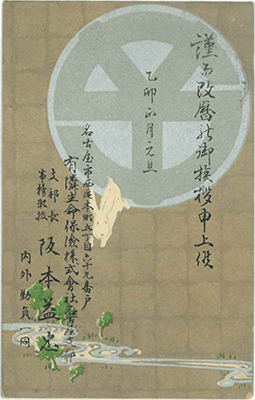 謹而改暦之御挨拶申上候
乙卯正月元旦
名古屋市西区本町五丁目六十九番戸
有隣生命保険株式會社名古屋支部
支部長
事務取扱
阪本益
内外勤員一同